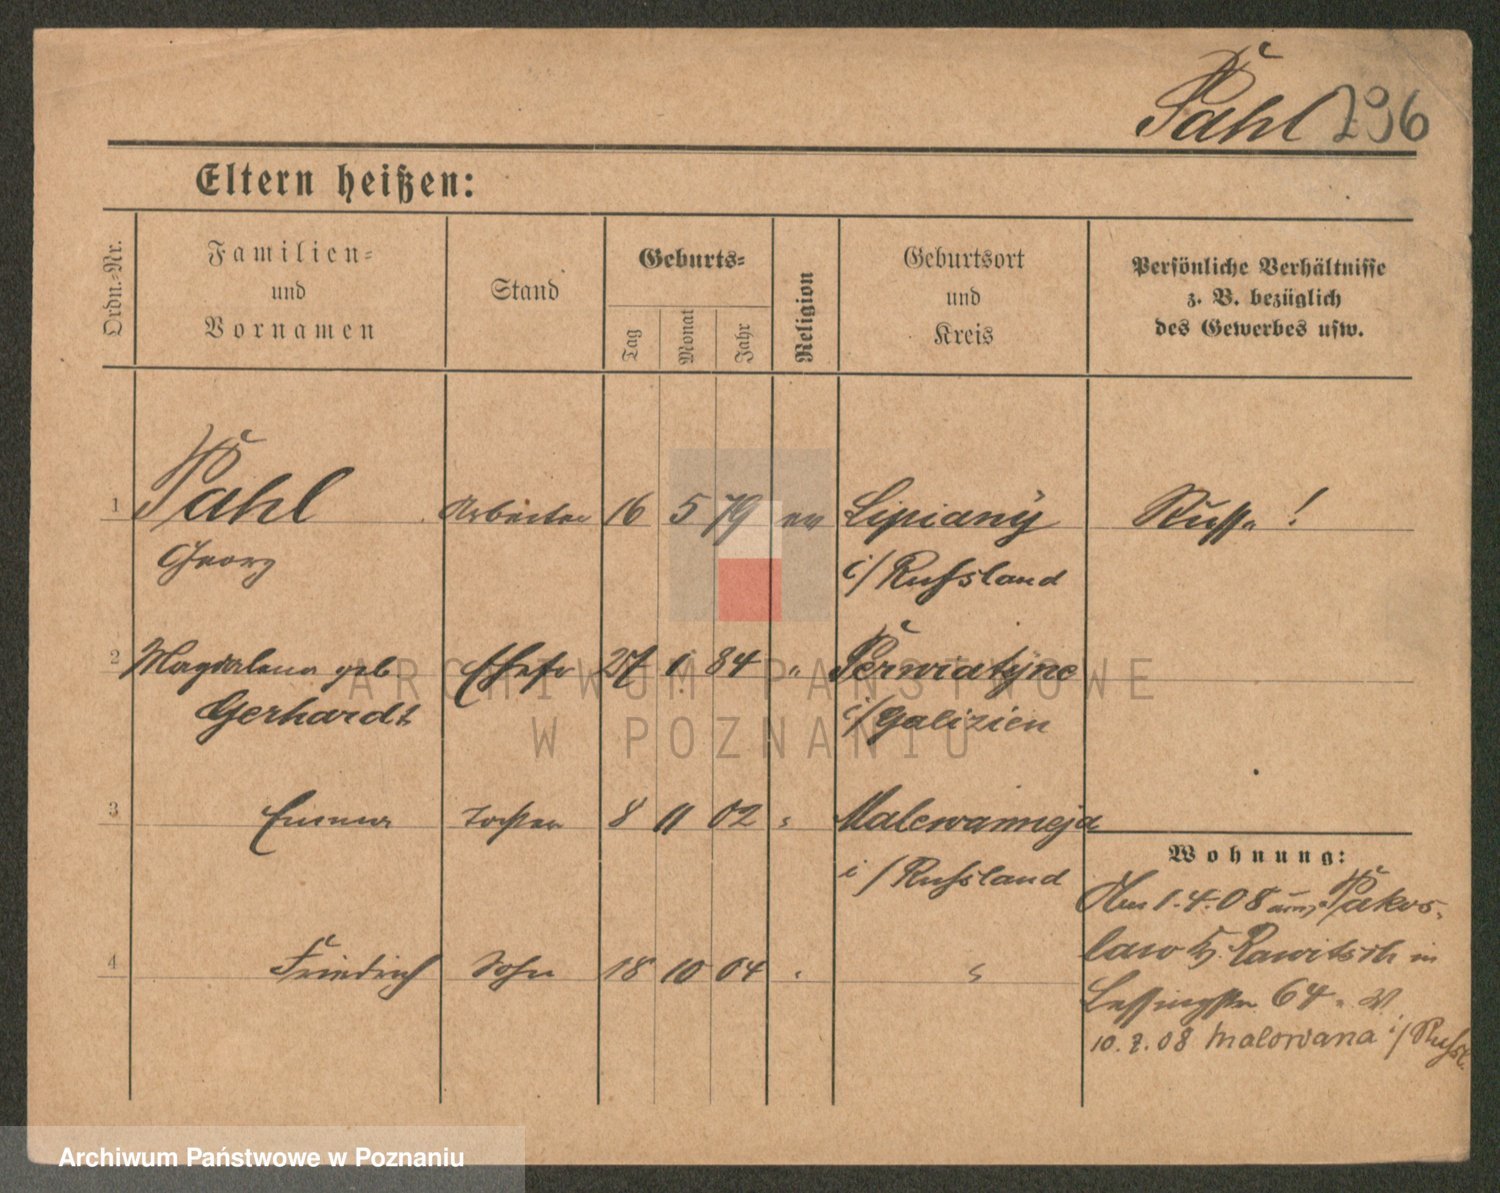 Pahl 296
Eltern heißen:
Ordn.-Nr.
Familien-
und
Vornamen
Stand
Geburts-
Tag
Monat
Jahr
Religion
Geburtsort
und
Kreis
Persönliche Verhältnisse
z. B. bezüglich
des Gewerbes usw.
1 Pahl Arbeiter 16 5 79 ev Lipiany Russe !
Georg i/Russland
2 Magdalena geb Ehefr 27 1. 84 " Perwiatyne
Gerhardt i/Galizien
3 Emma Tochter 8 11 02 " Malewanneja
i/Russland
Wohnung:
4 Friedrich Sohn 18 10 04 " "
Am 1.4.08 Pakos-
law Rawitsch in
Lessingstr 64
10. 08 Malowana i/Russl.
ARCHIWUM PAŃSTWOWE
W POZNANIU
Archiwum Państwowe w Poznaniu